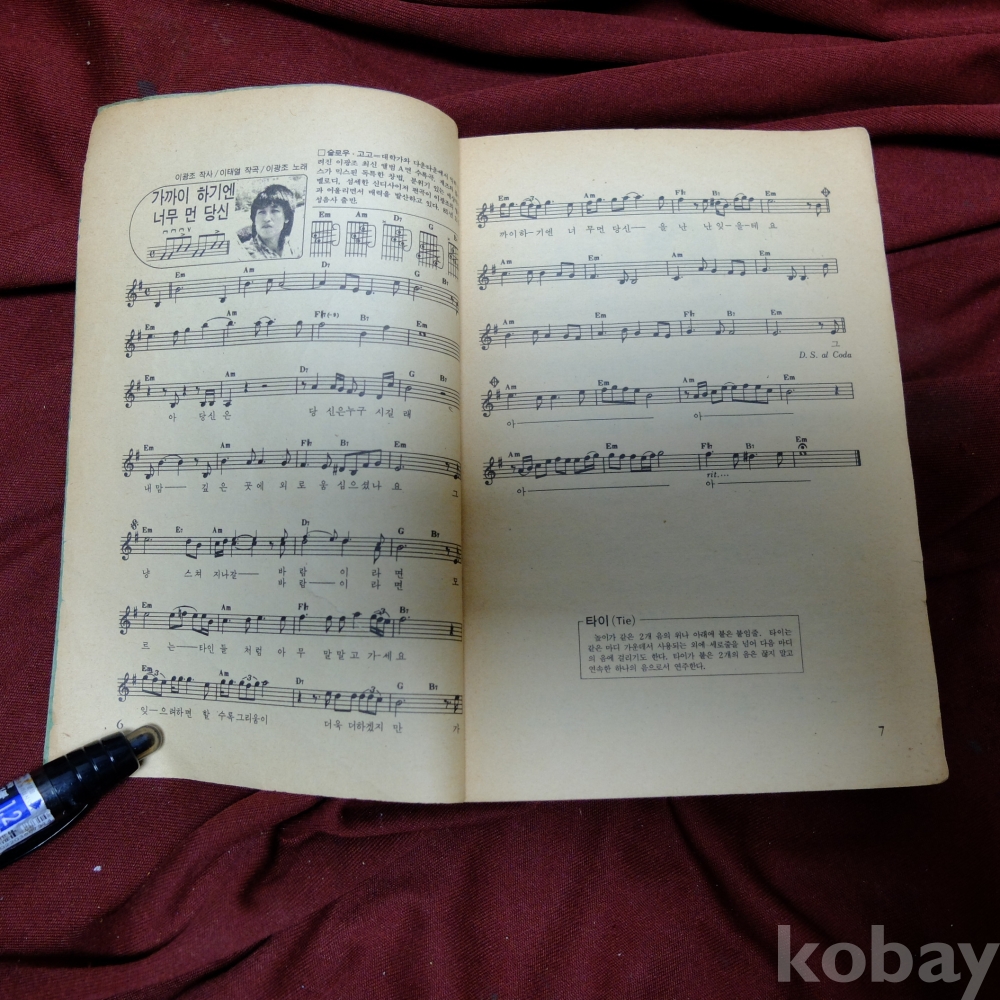 이광조 작사/이태열 작곡/이광조 노래
가까이 하기엔
너무 먼 당신
□슬로우·고고=대학가와 다운타운에서
려진 이광조 최신 앨범 A면 수록곡.
스가 믹스된 독특한 창법, 분위기 있는
멜로디, 섬세한 신디사이저 편곡이
과 어울리면서 매력을 발산하고 있다.
성음사 출반.
Em Am D7 G
Em Am D7 G B7
Em Am F#7(-5) B7 Em
Em Am D7 G B7
아 당신은 당 신은누구 시길 래
Em Am F#7 B7 Em
내맘── 깊은 곳에 외로 움 심으셨나 요 그
Em E7 Am D7 G B7
냥 스쳐 지나갈── 바람── 이 라 면 모
바람── 이 라 면
Em Am F#7 B7
르 는──타인 들 처럼 아 무 말말고 가-세 요
Em Am D7 G B7
잊─으려하면 할 수록그리움이 더욱 더하겠지 만 가
6
Em Am F#7 B7 Em
까이하─기엔 너 무먼 당신─ 을 난 난잊-을테 요
Am Em Am Em
Am Em F#7 B7 Em
그
D.S. al Coda
Am Em Am Em
아── 아──
Am Em F#7 B7 Em
rit....
아── 아──
타이(Tie)
높이가 같은 2개 음의 위나 아래에 붙은 붙임줄. 타이는
같은 마디 가운데서 사용되는 외에 세로줄을 넘어 다음 마디
의 음에 걸리기도 한다. 타이가 붙은 2개의 음은 끊지 말고
연속한 하나의 음으로서 연주한다.
7
1.2
kobay